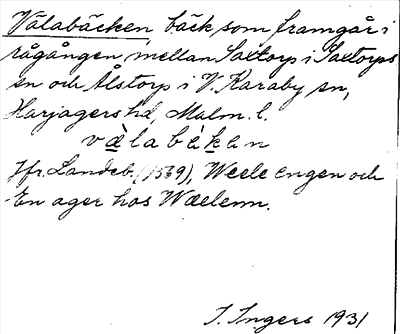 Välabäcken, bäck som framgår i
rågången mellan Saxtorp i Saxtorps
sn och Ålstorp i V. Karaby sn,
Harjagers hd, Malm. l.
vä̀labèken
Jfr. Landeb. (1569), Weele engen och
En ager hos Wæelenn.
I. Ingers 1931